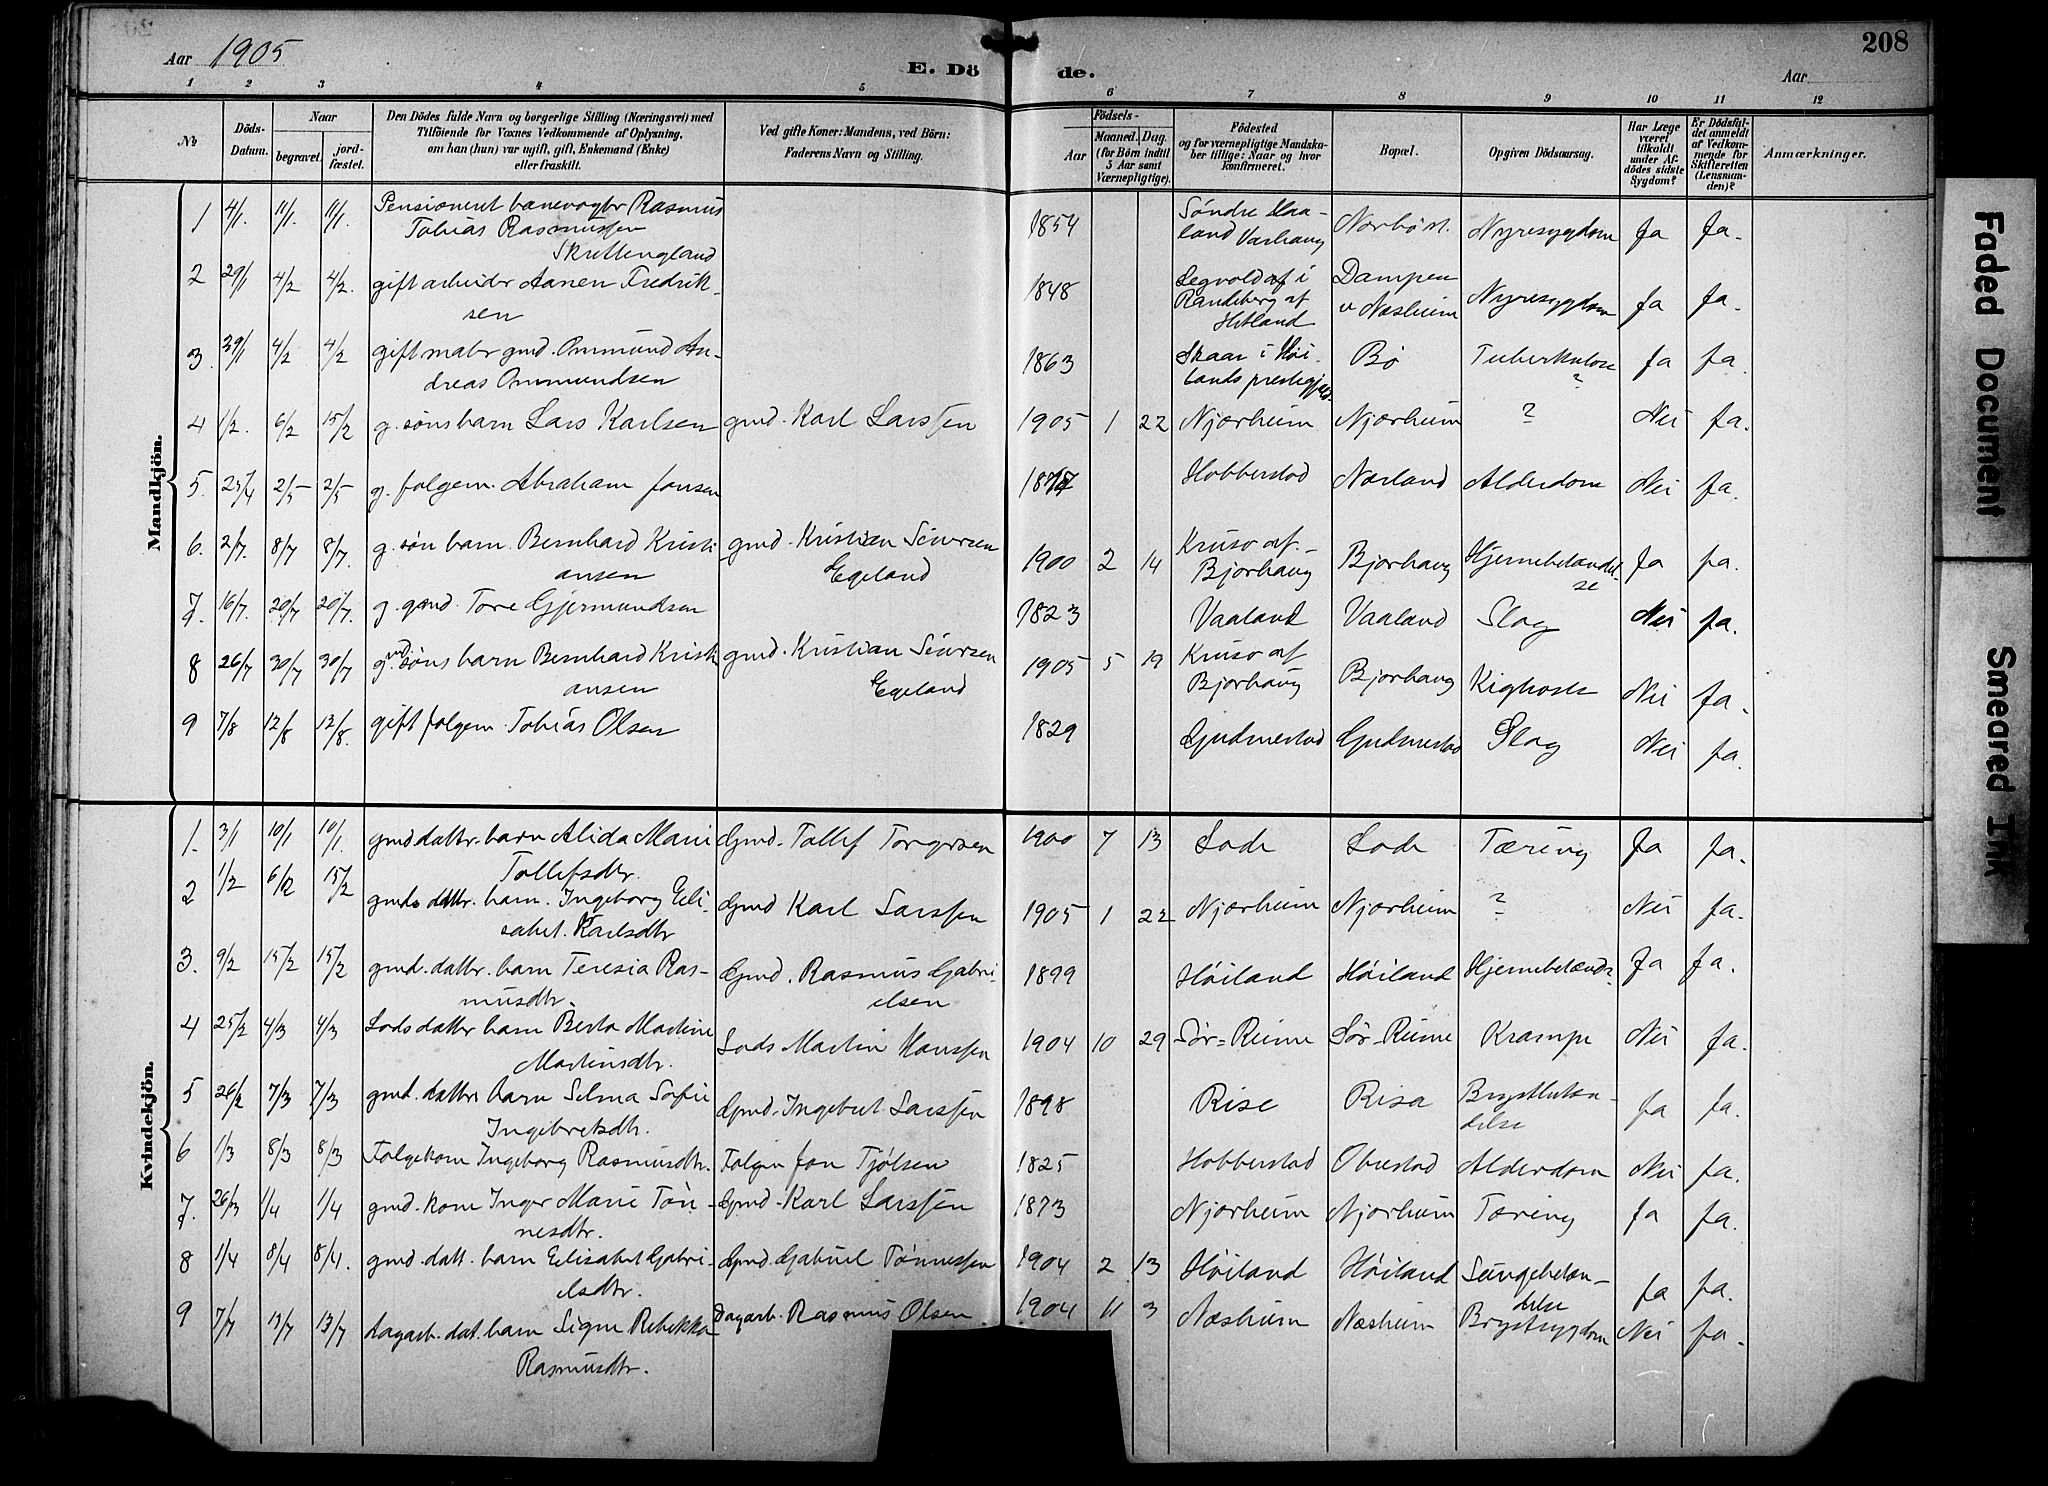 Aar 1905
E. Döde.
Aar
208
1 2 3 4 5 6 7 8 9 10 11 12
No
Döds-Datum.
Naar
begravet.
jordfæstet.
Den Dödes fulde Navn og borgerlige Stilling (Næringsvei) med
Tilföiende for Voxnes Vedkommende af Oplysning,
om han (hun) var ugift, gift, Enkemand (Enke)
eller fraskilt.
Ved gifte Koner: Mandens, ved Börn:
Faderens Navn og Stilling.
Födsels-
Aar
Maaned. Dag.
(for Börn indtil
5 Aar samt
Værnepligtige).
Födested
og for værnepligtige Mandska-
ber tillige: Naar og hvor
konfirmeret.
Bopæl.
Opgiven Dödsaarsag.
Har Læge
været
tilkaldt
under Af-
dödes sidste
Sygdom?
Er Dödsfal-
det anmeldt
af Vedkom-
mende for
Skifteretten
(Lensman-
den)?
Anmærkninger.
Mandkjön.
1 4/1. 11/1. 11/1. Pensioneret banevogter Rasmus Tobias Rasmussen Skrettengland 1854 Søndre Haaland Varhaug Nærbø st. Nyresygdom Ja Ja.
2 29/1 4/2 4/2. gift arbeider Aanen Fredriksen 1848 i Randeberg af Hetland Dampen v Næsheim Nyresygdom Ja Ja.
3. 4/2 4/2 gift mater gmd. Ommund Andreas Ommundsen 1863 Skaar i Høilands prestegjeld. Bø Tuberkulose ? Ja Ja.
4 1/2. 6/2 15/2 g. søns barn Lars Karlsen gmd. Karl Larssen 1905 1 22 Njærheim Njærheim ? Nei Ja.
5. 25/4 2/5 2/5 g. folgem. Abraham Jonsen Hobberstad Nærland Alderdom Nei Ja.
6. 2/7. 8/7 8/7. g. søn barn. Bernhard Kristiansen gmd. Kristian Siversen Egeland 1900 2 14 Kruse af. Bjorhaug Bjorhaug Hjernebetændelse Ja Ja.
7. 16/7. 20/7 20/7. g. gmd. Tore Gjermundsen 1823 Vaaland Vaaland Slag Nei Ja.
8 26/7 30/7 30/7 gmd. søns barn Bernhard Kristiansen gmd. Kristian Siversen Egeland 1905 5 19 Kruse af Bjorhaug Bjorhaug Kighoste Nei Ja.
9 7/8 12/8 12/8. gift folgem Tobias Olsen 1829 Gudmestad Gudmestad Slag Nei Ja.
Kvindekjön.
1. 3/1 10/1 10/1. gmd datter. barn Alida Marie Tollefsdtr. Gmd. Tollef Torgersen 1900 7 13 Lode Lode Tæring Ja Ja.
2 1/2 6/2 15/2 gmds datter. barn. Ingeborg Elisabet. Karlsdtr Gmd Karl Larssen 1905 1 22 Njærheim Njærheim ? Nei Ja.
3. 9/2 15/2 15/2 gmd. datter. barn Teresia Rasmusdtr. Gmd. Rasmus Gabrielsen 1899 Høiland Høiland Hjernebetænd. Ja Ja.
4 25/2 4/3 4/3 Lods datter barn Berta Martine Martinsdtr. Lods Martin Hanssen 1904 10 29 Sør=Reime Sør-Reime Krampe Nei Ja.
5 26/2 7/3 7/3 gmd. datter barn Selma Sofie Ingebretsdtr. Gmd. Ingebret Larssen 1898 Rise Risa Brystbetændelse Ja Ja.
6 1/3 8/3 8/3 Folgekone Ingeborg Rasmusdtr. Folgem Jon Tjølsen 1825 Hobberstad Obrestad Alderdom Nei Ja.
7. 26/3 1/4 1/4 gmd. kone Inger Marie Tønnesdtr. Gmd. Karl Larssen 1873 Njærheim Njærheim Tæring Ja Ja.
8 1/4 8/4 8/4. gmd. datt. barn Elisabet Gabrielsdtr. Gmd. Gabriel Tønnessen 1904 2 13 Høiland Høiland Lungebetændelse Ja Ja.
9 7/7 13/7 13/7 dagarb. dat. barn Signe Rebekka Rasmusdtr. Dagarb. Rasmus Olsen 1904 11 3 Næsheim Næsheim Brystsygdom Nei Ja.
Faded Document
Smeared Ink